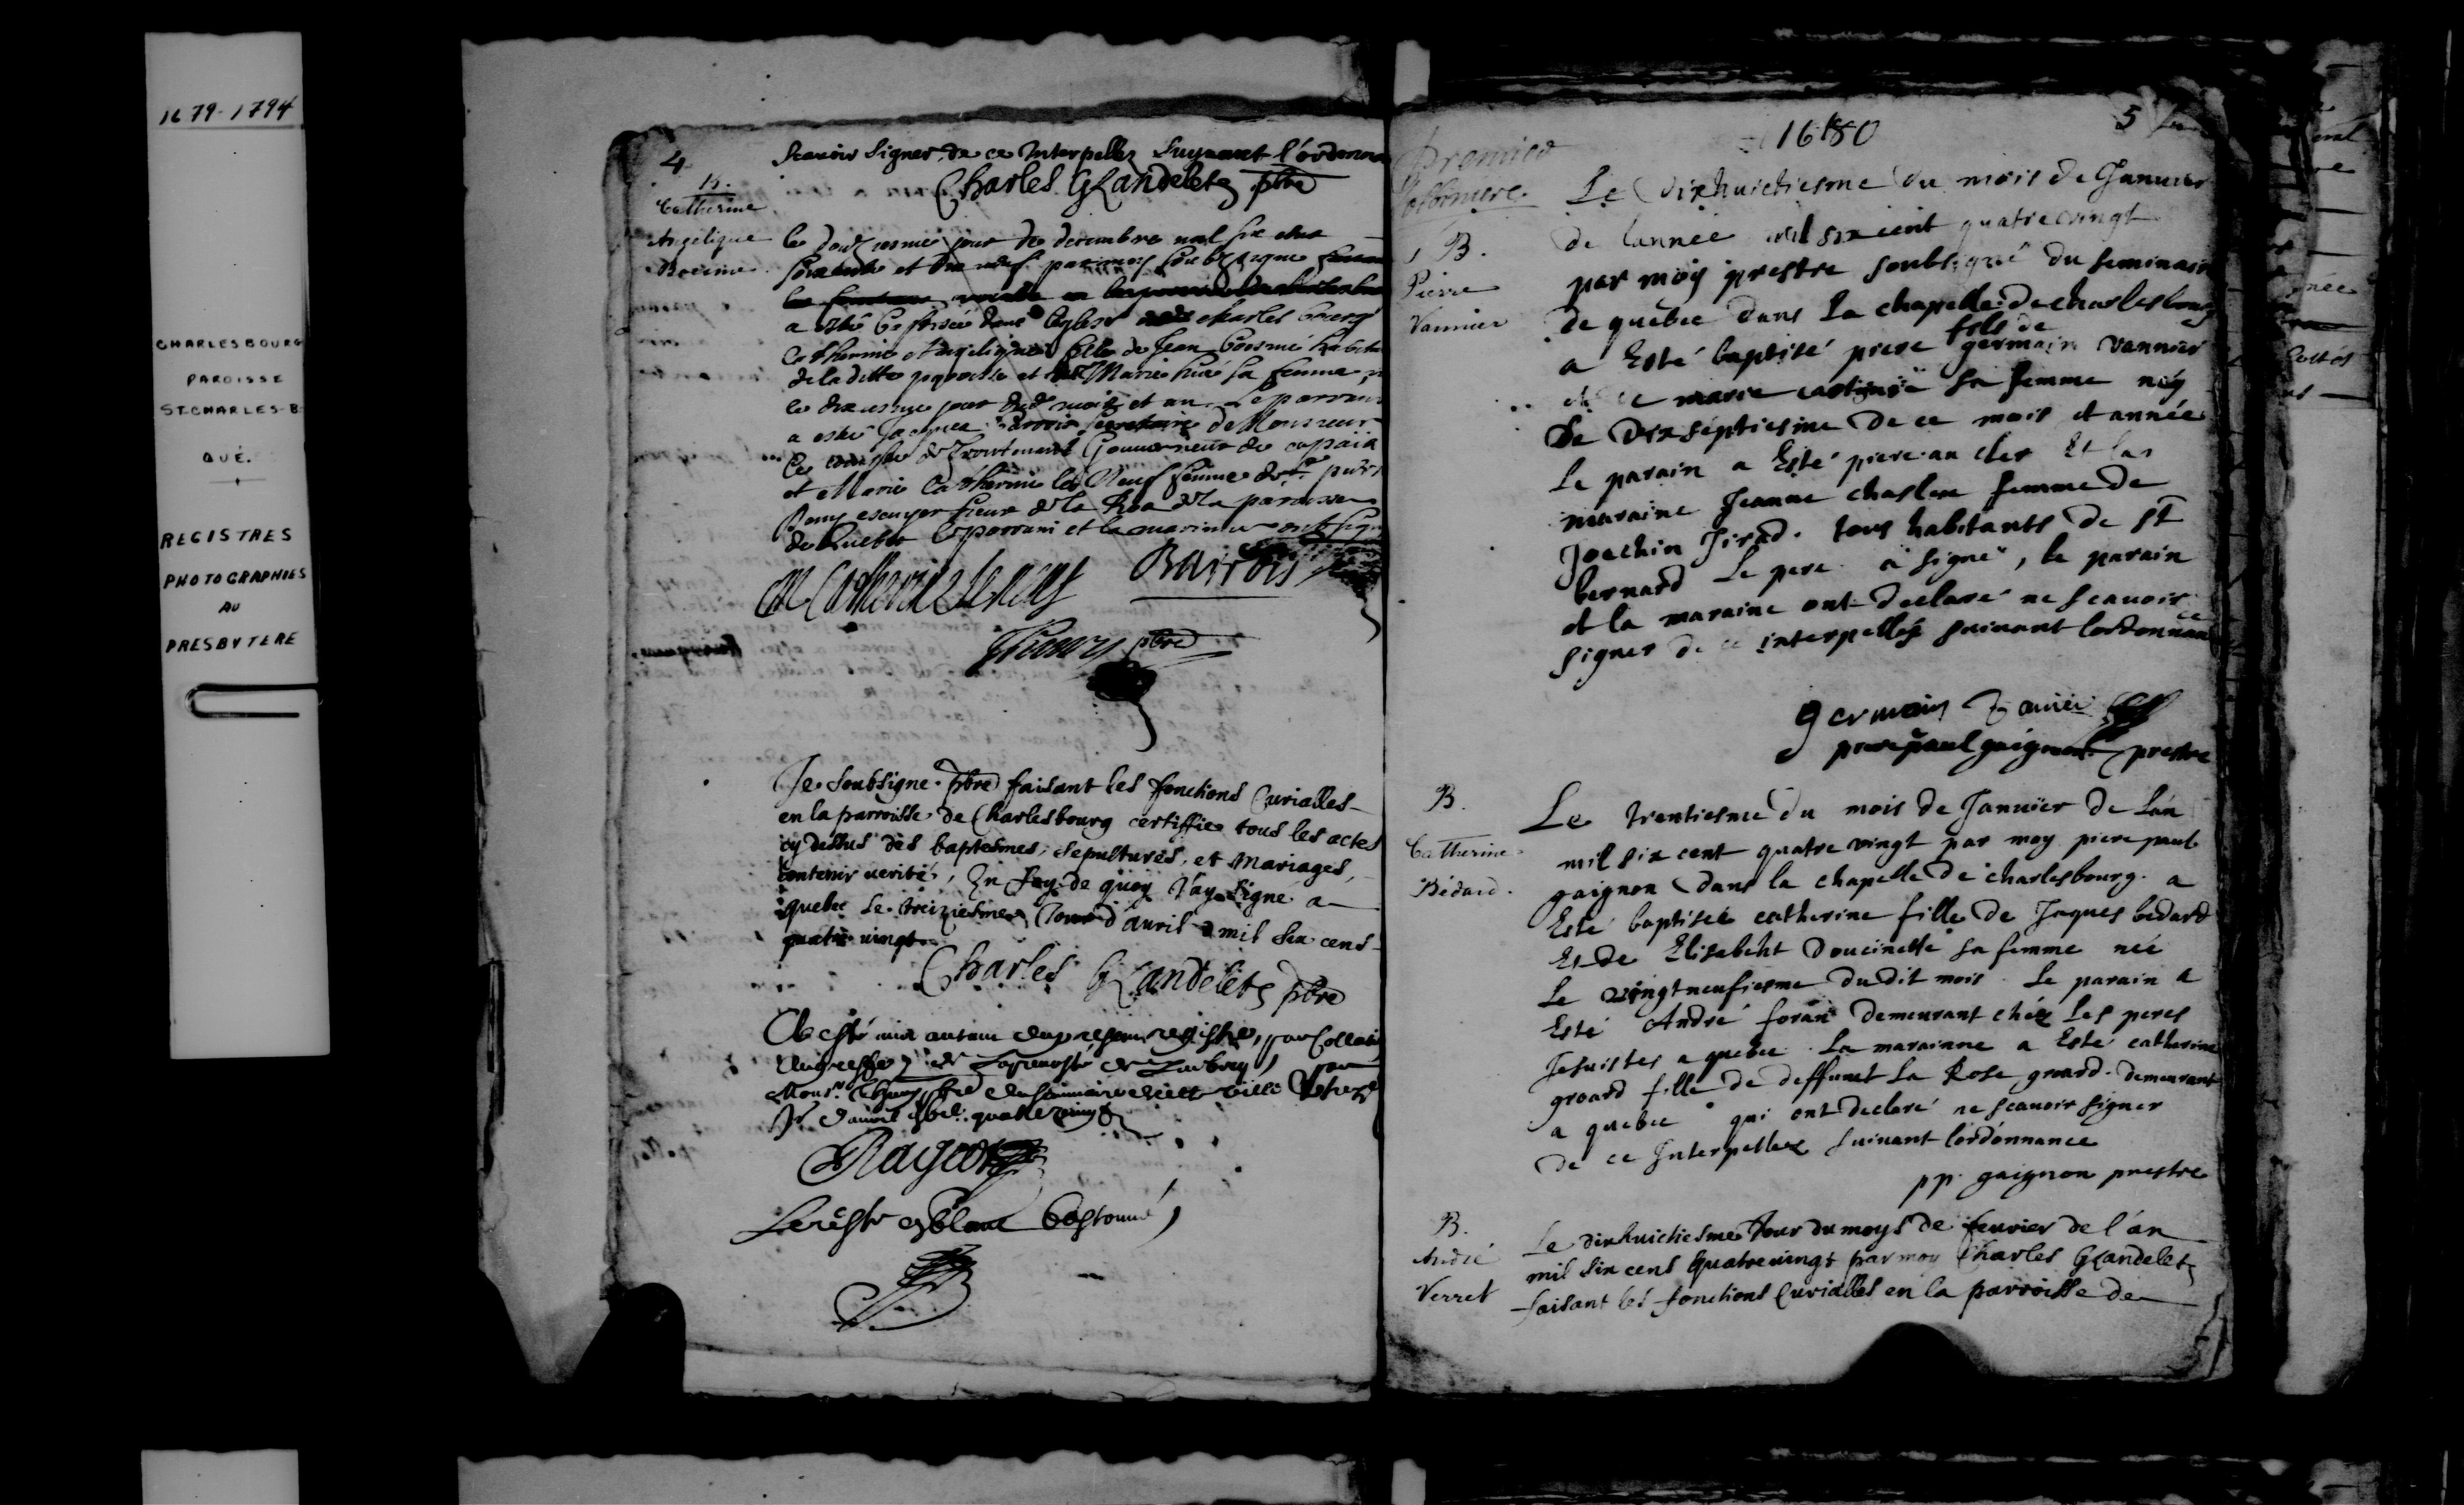 1679-1794
CHARLESBOURG
PAROISSE
ST-CHARLES-B.
QUÉ.
REGISTRES
PHOTOGRAPHIES
AU
PRESBYTERE
4
Scavoir signer de ce Interpellez suyvant l'ordonn
Charles Glandelet pbre
B.
Catherine
Angelique
Boesme
le douziesme jour de decembre mil six cens
soixante et dix neuf par moy soubsigne
a esté baptisée dans leglise charles bourg
Catherine Angelique fille de Jean boesmé habit
de la ditte paroisse et de Marie hué sa femme
le jour dud mois et an Le parrain
a esté Jacques Barrois secretaire de Monsieur
le comte de frontenac Gouverneur de ce païs
et Marie Catherine le Neuf femme de pierre
Remy escuyer sieur de la paroisse
de Quebec le parrain et la maraine ont signé
M Catherine leneuf Barrois
Thoury pbre
Je soubsigne pbre faisant les fonctions Curialles
en la parroisse de Charlesbourg certiffie tous les actes
cy dessus des baptesmes, sepultures, et Mariages,
contenir verité, En foy de quoy J'ay signé a
quebec le treiziesme Jour d'avril mil six cens
quatre vingt
Charles Glandelet pbre
A esté mis autant du present registre, par Collation
au greffe de la prevosté de Quebecq, par
Mons.r Thury pbre du seminaire de cette ville
d'avril quatre vingt
Rageot
Le reste en blanc bastonné
1680
5
Premier
B.
Pierre
Vannier
Le dixhuictiesme du mois de Januier
de lannée mil six cent quatre vingt
par moy prestre soubsigné du seminair
de quebec dans la chapelle de charlesbourg
fils de
a Esté baptisé piere germain vannier
et de marie sa femme néy
Le dix septiesme de ce mois et année
Le parain a Esté piere au cler Et la
maraine Jeanne chaslon femme de
Joachin Girad. tous habitants de st
bernard Le pere a signé, le parain
et la maraine ont declaré ne scavoir
signer de ce interpellés suivant lordonnance
germain vanier
piere paul gaignon prestre
B.
Catherine
Bédard.
Le trentiesme du mois de Januier de lan
mil six cent quatre vingt par moy piere paul
gaignon dans la chapelle de charlesbourg. a
Esté baptisée catherine fille de Jaques bedard
Et de Elisabeht doucinette sa femme née
Le vingtneufiesme dudit mois. Le parain a
Esté André foran demeurant chéz Les peres
Jesuistes a quebec. La marainne a Esté catherine
groard fille de deffunct La Rose groard. demeurant
a quebec qui ont declaré ne scavoir signer
de ce Interpellez suivant l'ordonnance
pp. gaignon prestre
B.
André
Verret
Le dixhuictiesme Jour du moys de feurier de l'an
mil six cens quatre vingt par moy Charles Glandelet
faisant les fonctions Curialles en la parroisse de